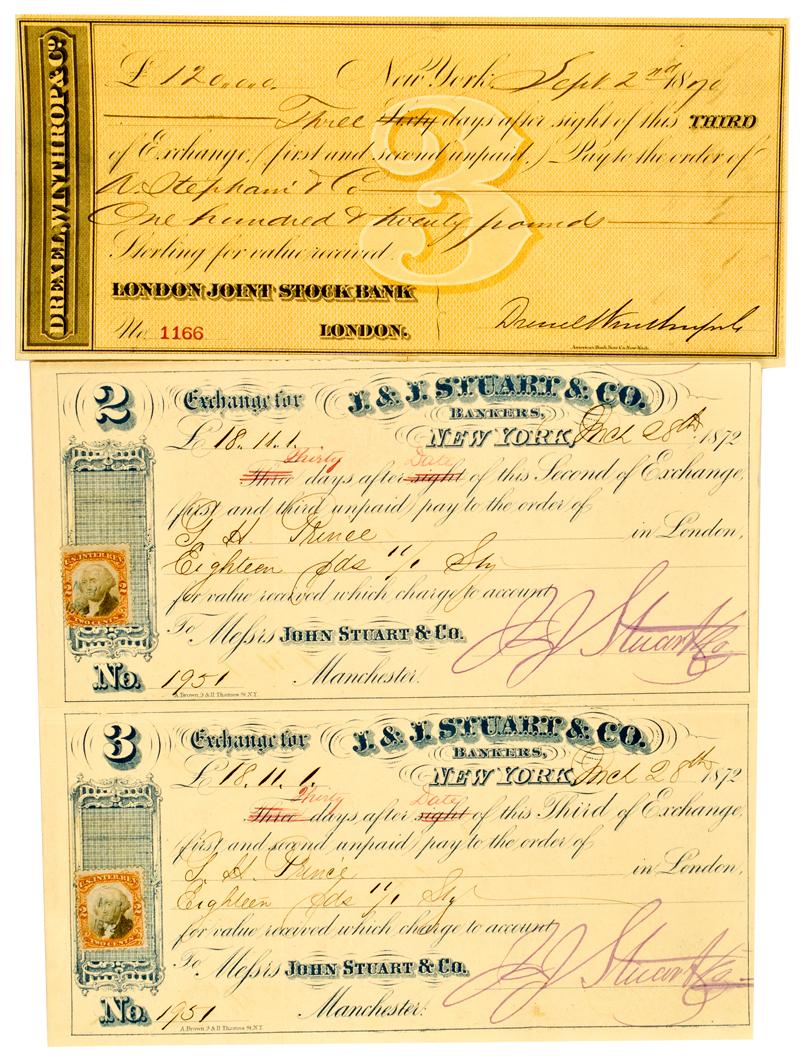 DREXEL, WINTHROP & Co
£ 120.0.0. New York, Sept. 2nd 1870
Three Sixty days after sight of this THIRD
of Exchange, (first and second unpaid,) Pay to the order of
A. Stephani & Co
One hundred & twenty pounds
Sterling for value received.
LONDON JOINT STOCK BANK
No. 1166 LONDON.
Drexel Winthrop & Co
American Bank Note Co. New York.
2 Exchange for J. & J. STUART & CO.
BANKERS,
£ 18.11.1. NEW YORK, Mch 28th 1872
Thirty Date
Three days after sight of this Second of Exchange,
(first and third unpaid) pay to the order of
G. H. Prince in London,
Eighteen pds 11/1 Stg
for value received which charge to account
U.S. INTER. REV.
TWO CENTS
To Messrs JOHN STUART & CO.
J & J Stuart & Co
No. 1951 Manchester.
A. Brown, 9 & 11 Thames St. N.Y.
3 Exchange for J. & J. STUART & CO.
BANKERS,
£ 18.11.1. NEW YORK, Mch 28th 1872
Thirty Date
Three days after sight of this Third of Exchange,
first and second unpaid) pay to the order of
G. H. Prince in London,
Eighteen pds 11/1 Stg
for value received which charge to account
U.S. INTER. REV.
TWO CENTS
To Messrs JOHN STUART & CO.
J & J Stuart & Co
No. 1951 Manchester.
A. Brown, 9 & 11 Thames St. N.Y.